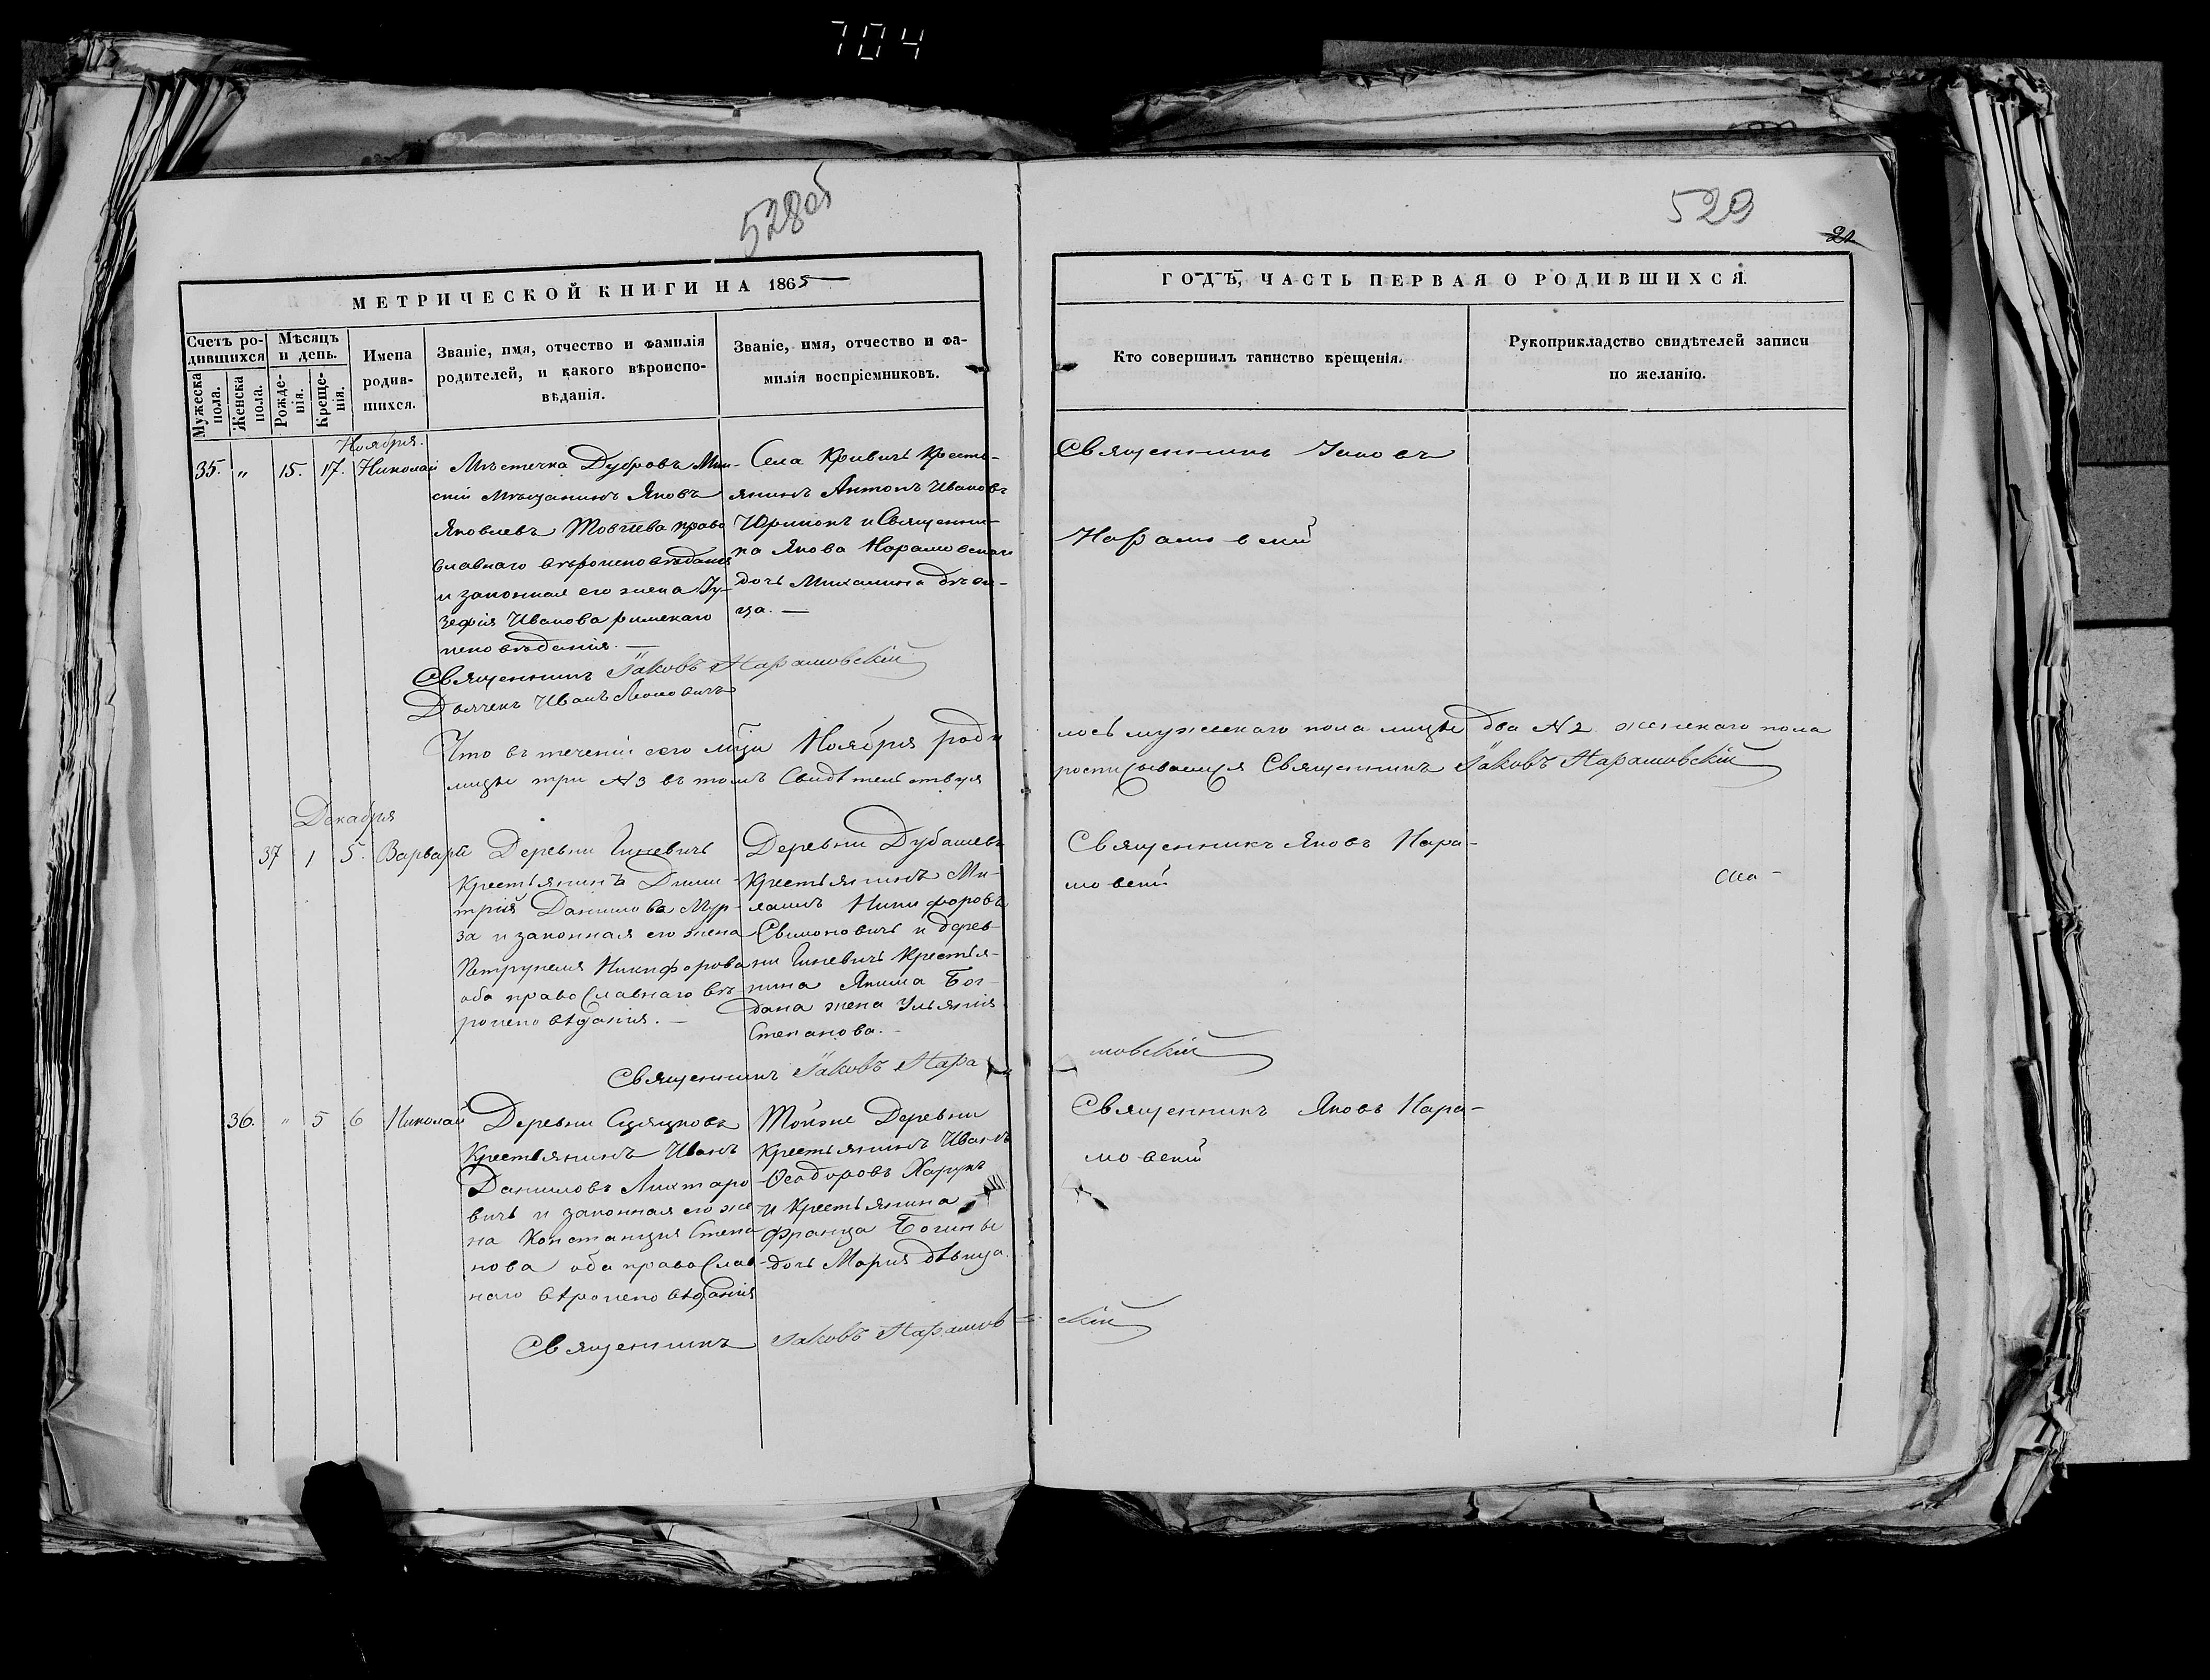 704
528об
529
21
МЕТРИЧЕСКОЙ КНИГИ НА 1865
ГОДЪ, ЧАСТЬ ПЕРВАЯ О РОДИВШИХСЯ.
Счетъ ро-
дившихся
Мужеска
пола.
Женска
пола.
Мѣсяцъ
и день.
Рожде-
нія.
Креще-
нія.
Имена
родив-
шихся.
Званіе, имя, отчество и фамилія
родителей, и какого вѣроиспо-
вѣданія.
Званіе, имя, отчество и фа-
милія воспріемниковъ.
Кто совершилъ таинство крещенія.
Рукоприкладство свидѣтелей записи
по желанію.
Ноября.
35. " 15. 17. Николай
Мѣстечка Дубровъ Мин-
скій мѣщанинъ Яковъ
Яковлевъ право
славнаго вѣроисповѣданія
и законная его жена Іу-
зефія Иванова римскаго
исповѣданія. —
Села Кривичъ кресть-
янинъ Антонъ Ивановъ
и Священни-
ка Якова Нарановскаго
дочь Михалина дѣви-
ца. —
Священникъ Яковъ
Нарановскій
Священникъ Іаковъ Нарановскій
Дьячекъ Иванъ
Что въ теченіи сего мѣсяца Ноября роди
лось мужескаго пола лицъ два №2 женскаго пола
лицъ три №3 въ томъ Свидѣтельствуя
росписываемся Священникъ Іаковъ Нарановскій
Декабря
37 1 5. Варвара
Деревни
Крестьянинъ Дими-
трій Данилова Мур-
за и законная его жена
Петрунеля Никифорова
оба православнаго вѣ-
роисповѣданія. —
Деревни
Крестьянинъ Ми-
хаилъ Никифоровъ
и дерев-
ни Крестья-
нина Якима Бог-
дана жена Ульянія
Степанова. —
Священникъ Яковъ Нара-
новскій
Священникъ Іаковъ Нара
новскій
36. " 5 6 Николай
Деревни
Крестьянинъ Иванъ
Даниловъ Лихтаро
вичъ и законная его же
на Констанція Степа
нова оба православ-
наго вѣроисповѣданія
Тойже Деревни
Крестьянинъ Иванъ
Ѳеодоровъ Харукъ
и Крестьянина
Франца Богины
дочь Марія дѣвица.
Священникъ Яковъ Нара-
новскій
Священникъ Іаковъ Наранов
скій